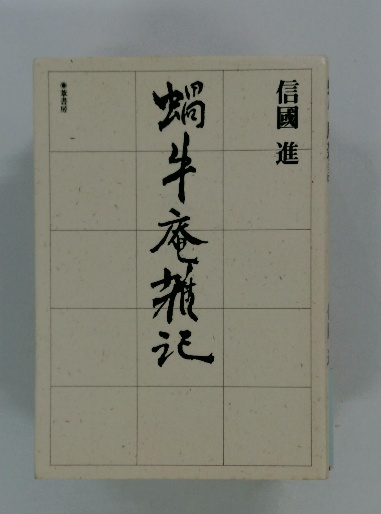 信國 進
蝸牛庵雑記
葦書房